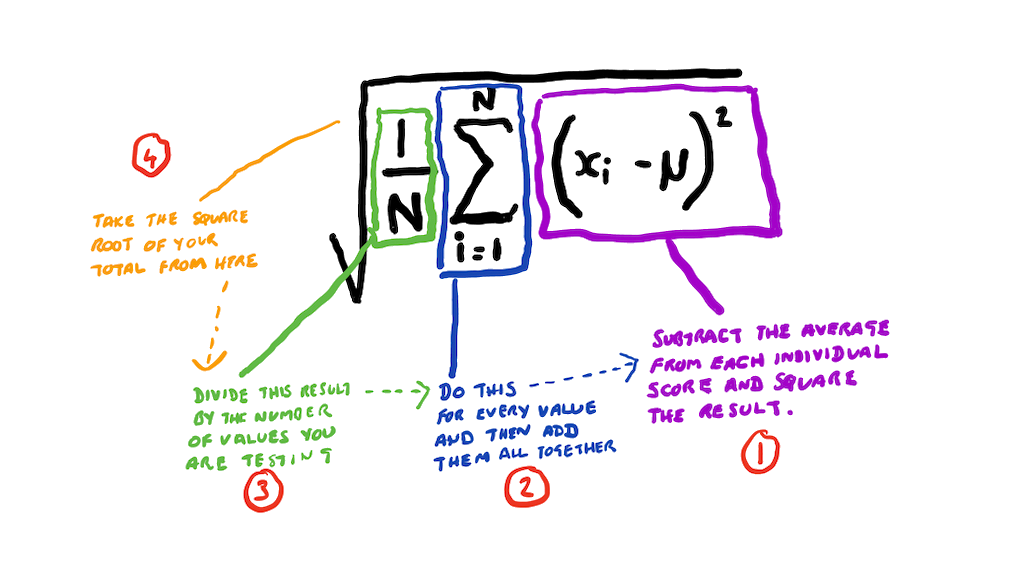 √ 1/N N Σ i=1 (xᵢ - μ)²
4
TAKE THE SQUARE
ROOT OF YOUR
TOTAL FROM HERE
DIVIDE THIS RESULT
BY THE NUMBER
OF VALUES YOU
ARE TESTING
3
DO THIS
FOR EVERY VALUE
AND THEN ADD
THEM ALL TOGETHER
2
SUBTRACT THE AVERAGE
FROM EACH INDIVIDUAL
SCORE AND SQUARE
THE RESULT.
1